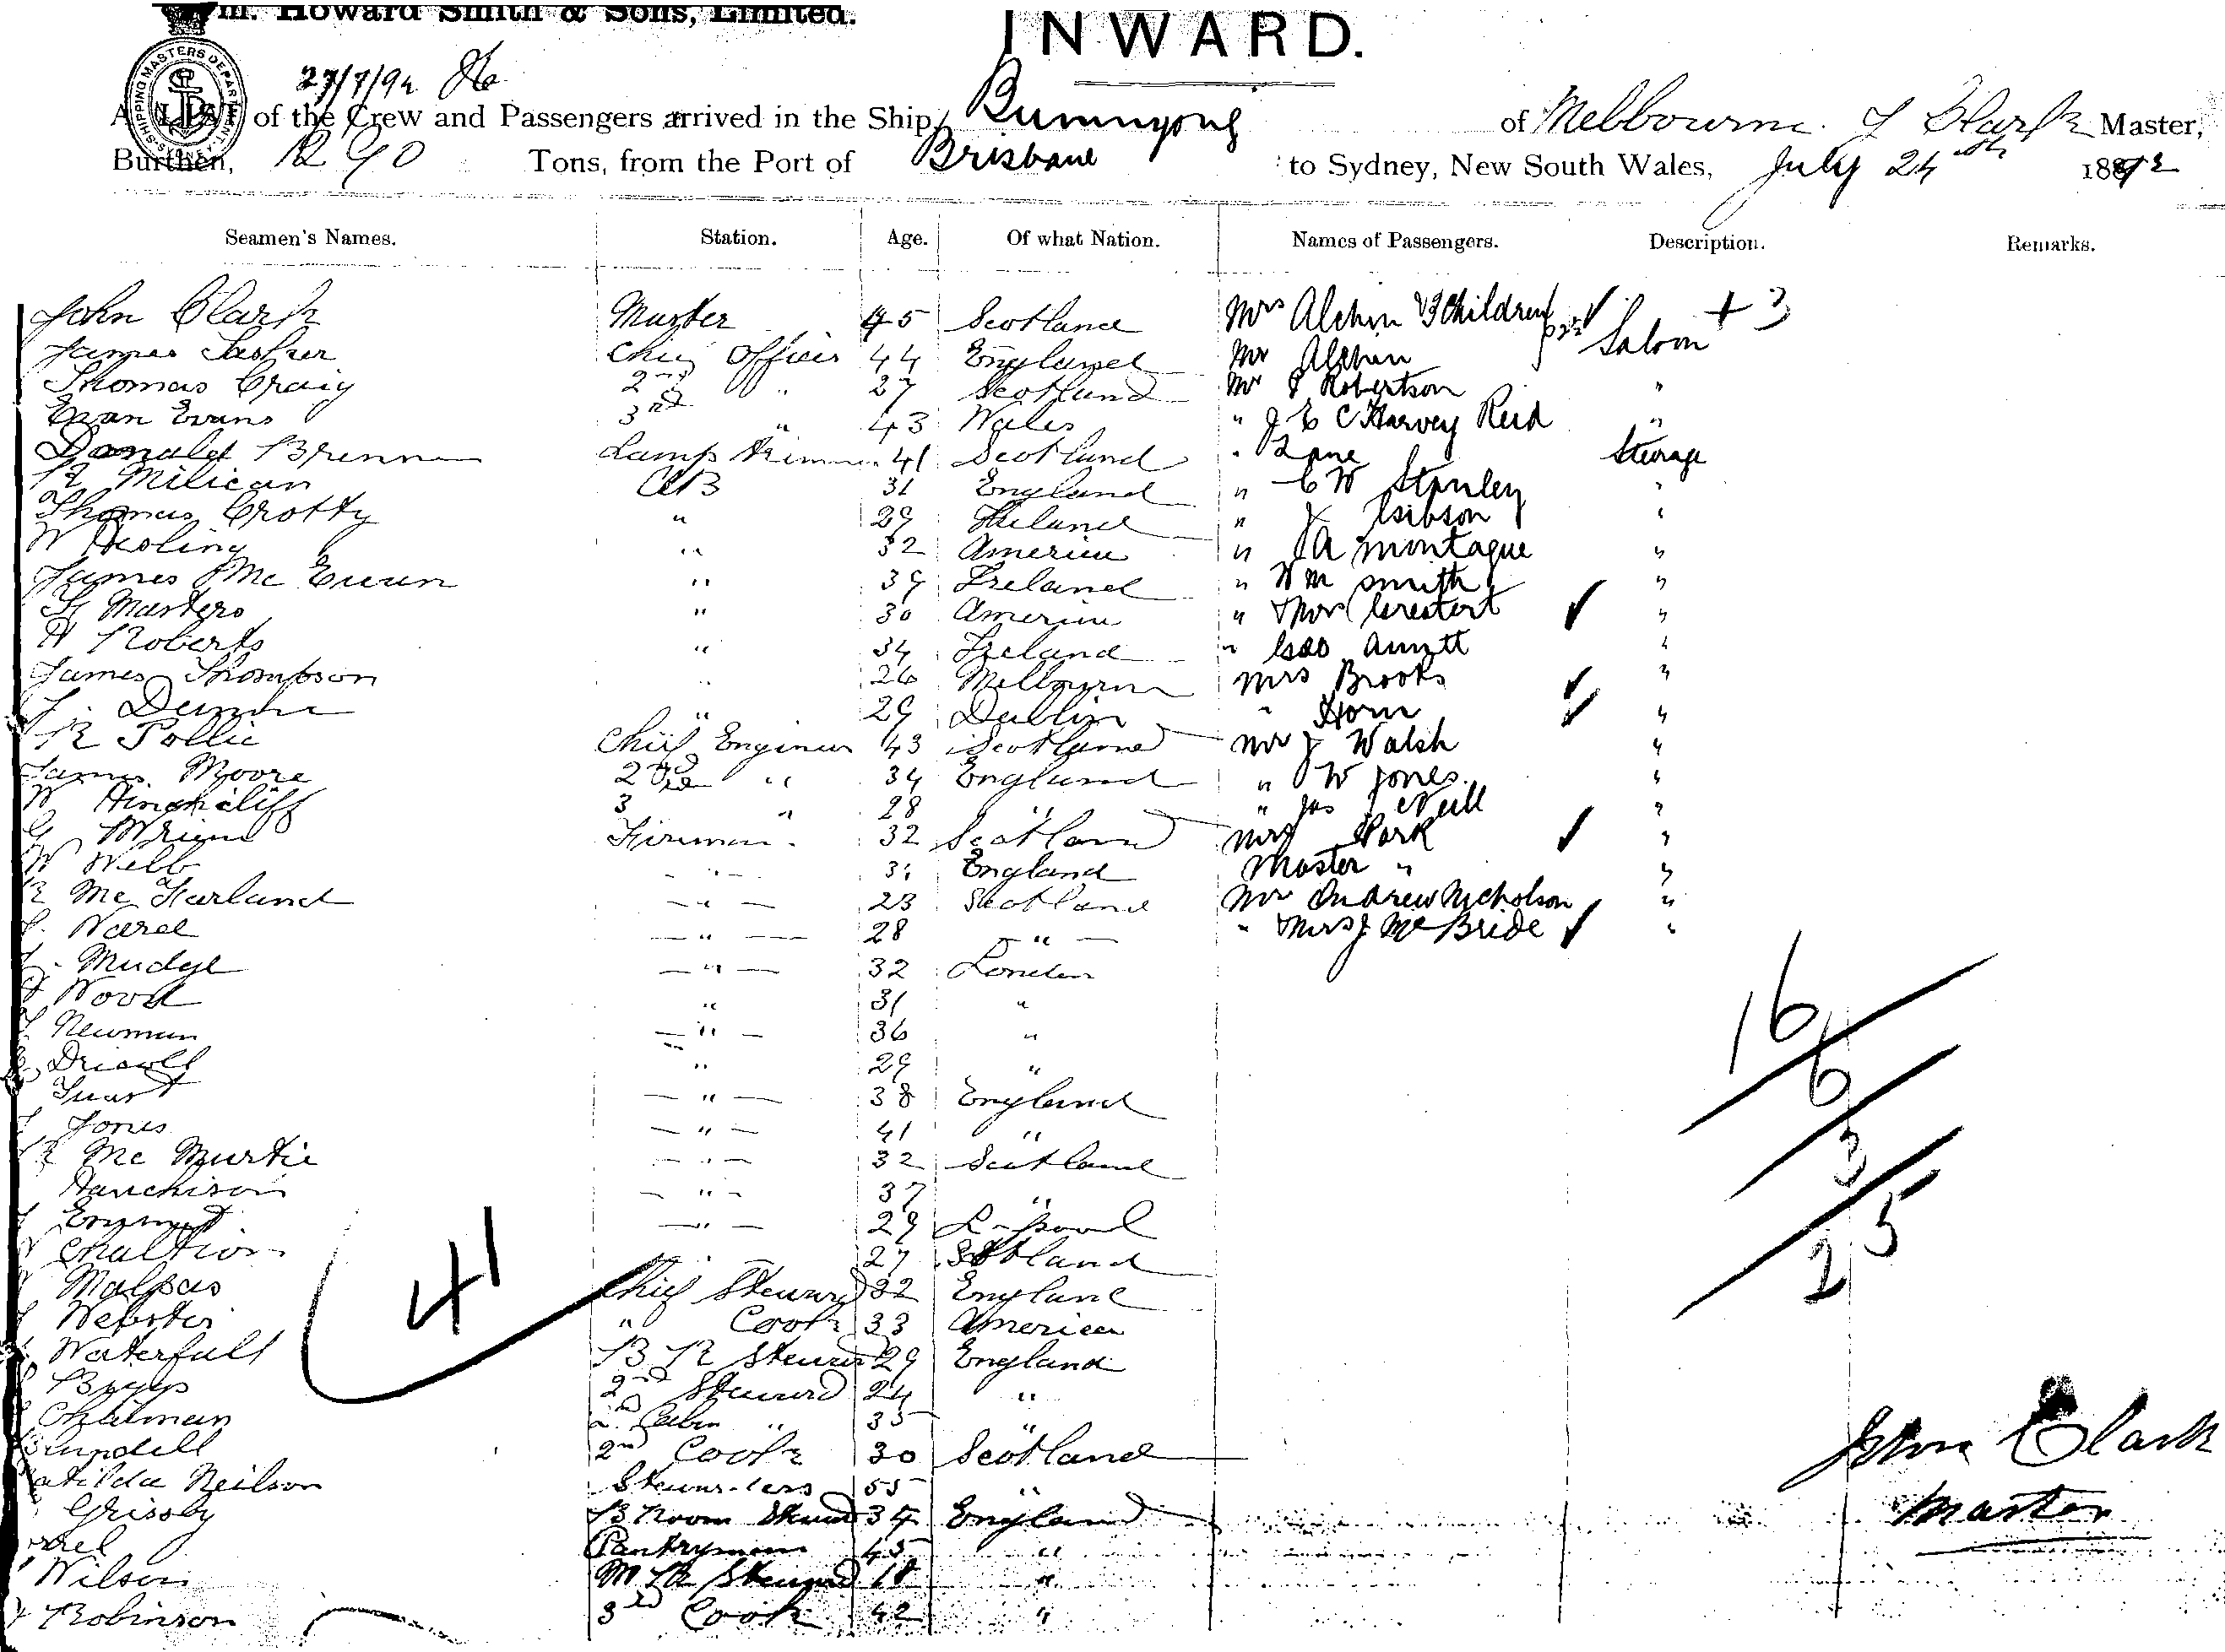 m. Howard Smith & Sons, Limited.
INWARD.
SHIPPING MASTERS DEPARTMENT
27/7/92
A LIST of the Crew and Passengers arrived in the Ship Buninyong of Melbourne J Clark Master,
Burthen, 1290 Tons, from the Port of Brisbane to Sydney, New South Wales, July 24th 1892
Seamen's Names. Station. Age. Of what Nation. Names of Passengers. Description. Remarks.
John Clark Master 45 Scotland Mrs Alchin & 3 Children Saloon + 3
James Chief Officer 44 England Mr Alchin
Thomas Craig 2nd " 27 Scotland Mr Robertson "
Evan Evans 3rd " 43 Wales " J E C Harvey Reid "
Donald Lamp Trimmer 41 Scotland " Lane Steerage
R Milican AB 31 England " C W Stanley "
Thomas Crotty " 29 Ireland " J Gibson "
W " 32 America " J A Montague "
James McEwan " 39 Ireland " Wm Smith "
Masters " 30 America " "
H Roberts " 34 Ireland " Geo "
James Thompson " 26 Melbourne Mrs Brooks "
" 29 Dublin " Horn "
R Pollic Chief Engineer 43 Scotland Mr J Walsh "
James Moore 2nd " 34 England " W Jones "
W Hinchcliff 3rd " 28 " " Jas Neill "
Fireman 32 Scotland Mrs Park "
W Webb " 31 England Master " "
R McFarland " 23 Scotland Mr Andrew Nicholson "
" 28 " " Mrs J McBride "
Mudge " 32 London
Wood " 31 "
Newman " 36 "
Driscoll " 29 "
" 38 England
Jones " 41 "
R McMurtie " 32 Scotland
Hanchison " 37 "
" 29 L-pool
27 Scotland
Malpas Chief Steward 32 England
Webster " Cook 33 America
Waterfall B R Steward 29 England
2nd Steward 24 "
2nd Cabin " 35 "
2nd Cook 30 Scotland
atilda Neilson Stewardess 55 "
Grissby B Room Steward 34 England
Pantryman 45 "
Wilson M R Steward 18 "
Robinson 3rd Cook 42 "
41
16
6
3
25
John Clark
Master